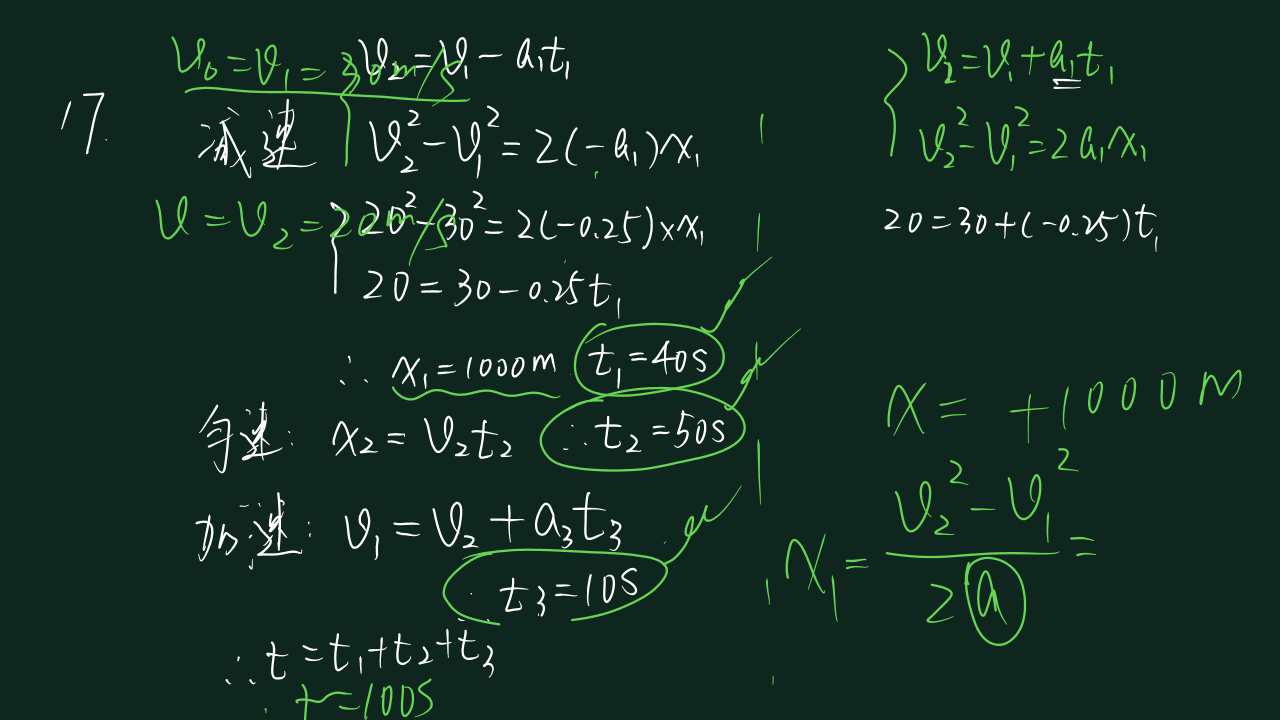 v₀=v₁=30m/s
v₂=v₁-a₁t₁
17.
减速
v₂²-v₁²=2(-a₁)x₁
v=v₂=20m/s
20²-30²=2(-0.25)×x₁
20=30-0.25t₁
∴ x₁=1000m t₁=40s
匀速: x₂=v₂t₂ ∴t₂=50s
加速: v₁=v₂+a₃t₃
t₃=10s
∴t=t₁+t₂+t₃
t=100s
v₂=v₁+a₁t₁
v₂²-v₁²=2a₁x₁
20=30+(-0.25)t₁
x=+1000m
x₁=(v₂²-v₁²)/2a=